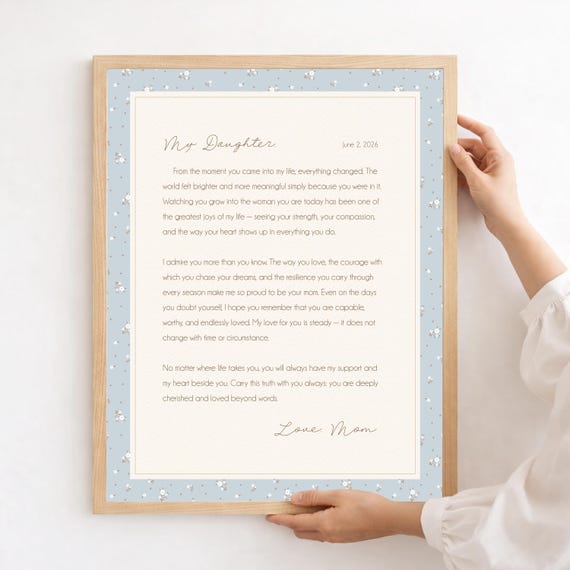 My Daughter,
June 2, 2026
From the moment you came into my life, everything changed. The
world felt brighter and more meaningful simply because you were in it.
Watching you grow into the woman you are today has been one of
the greatest joys of my life — seeing your strength, your compassion,
and the way your heart shows up in everything you do.
I admire you more than you know. The way you love, the courage with
which you chase your dreams, and the resilience you carry through
every season make me so proud to be your mom. Even on the days
you doubt yourself, I hope you remember that you are capable,
worthy, and endlessly loved. My love for you is steady — it does not
change with time or circumstance.
No matter where life takes you, you will always have my support and
my heart beside you. Carry this truth with you always: you are deeply
cherished and loved beyond words.
Love, Mom